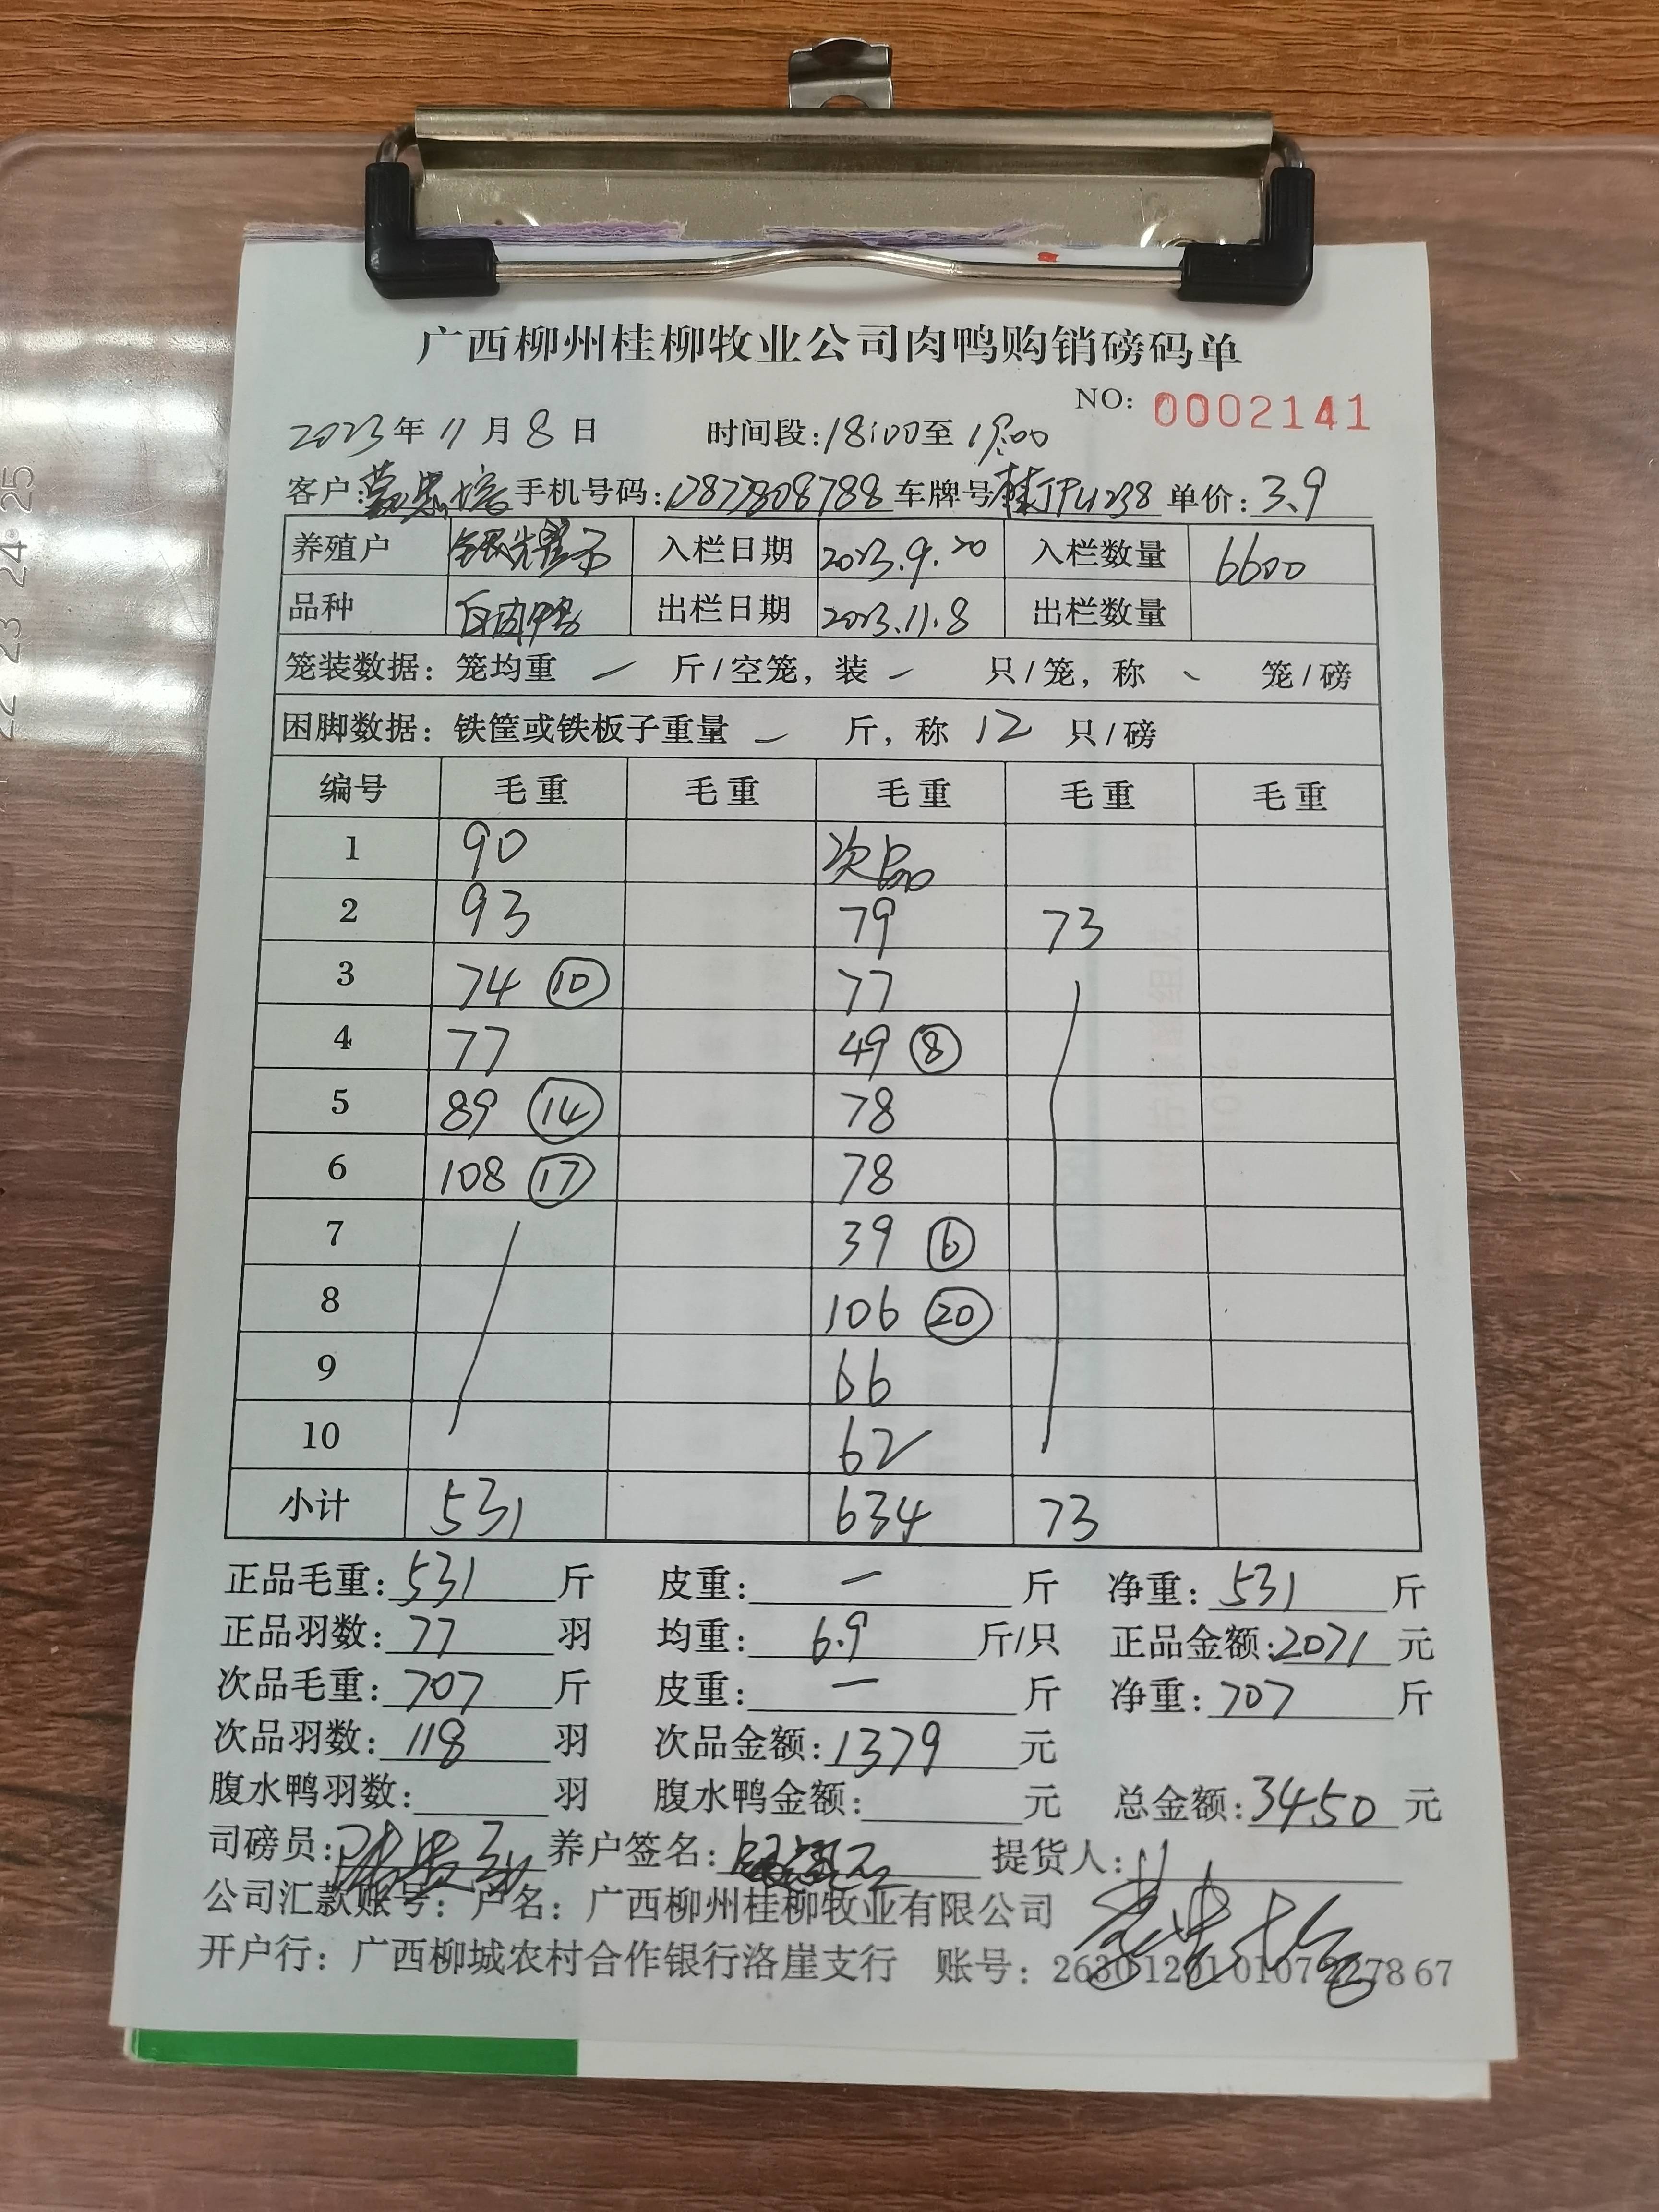 广西柳州桂柳牧业公司肉鸭购销磅码单
NO: 0002141
2023年11月8日 时间段:18:00至19:00
客户: 手机号码:17877808788 车牌号 单价:3.9
养殖户 入栏日期 2023.9.20 入栏数量 6600
品种 白肉鸭 出栏日期 2023.11.8 出栏数量
笼装数据: 笼均重 — 斤/空笼, 装 — 只/笼, 称 、 笼/磅
困脚数据: 铁筐或铁板子重量 — 斤, 称 12 只/磅
编号 毛重 毛重 毛重 毛重 毛重
1 90 次品
2 93 79 73
3 74 ⑩ 77
4 77 49 ⑧
5 89 ⑭ 78
6 108 ⑰ 78
7 39 ⑥
8 106 ⑳
9 66
10 62
小计 531 634 73
正品毛重:531斤 皮重:—斤 净重:531斤
正品羽数:77羽 均重:6.9斤/只 正品金额:2071元
次品毛重:707斤 皮重:—斤 净重:707斤
次品羽数:118羽 次品金额:1379元
腹水鸭羽数:羽 腹水鸭金额:元 总金额:3450元
司磅员: 养户签名: 提货人:
公司汇款账号: 户名: 广西柳州桂柳牧业有限公司
开户行: 广西柳城农村合作银行洛崖支行 账号:
22 23 24 25